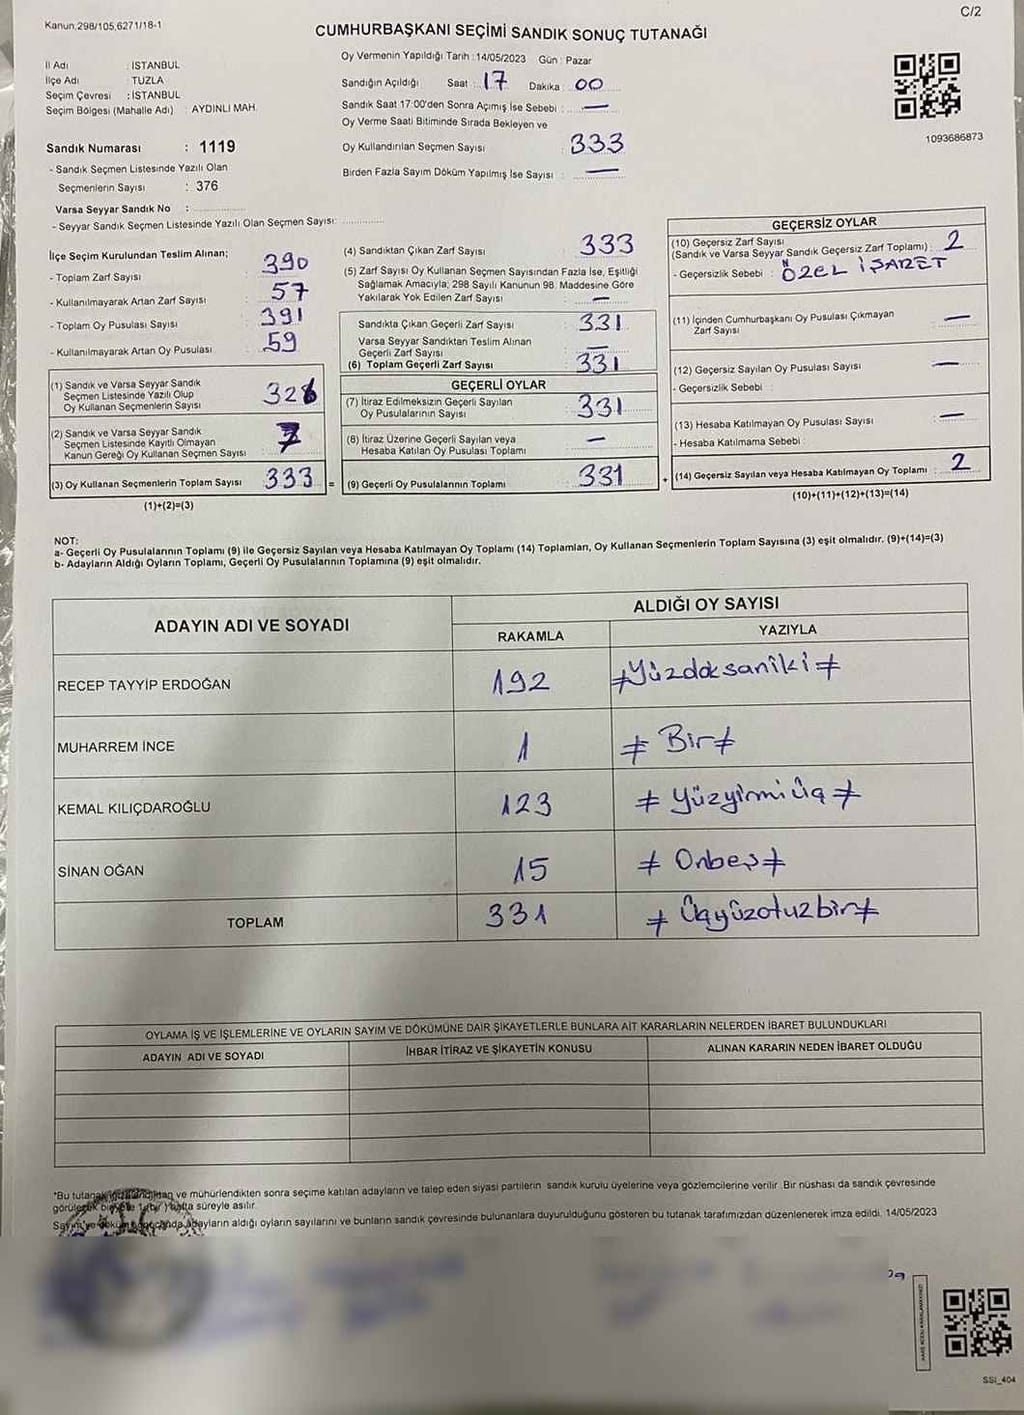 Kanun,298/105,6271/18-1
C/2
CUMHURBAŞKANI SEÇİMİ SANDIK SONUÇ TUTANAĞI
İl Adı : İSTANBUL
İlçe Adı : TUZLA
Seçim Çevresi : İSTANBUL
Seçim Bölgesi (Mahalle Adı) : AYDINLI MAH.
Oy Vermenin Yapıldığı Tarih : 14/05/2023 Gün : Pazar
Sandığın Açıldığı Saat : 17 Dakika : 00
Sandık Saat 17:00'den Sonra Açımış İse Sebebi : —
Oy Verme Saati Bitiminde Sırada Bekleyen ve
Oy Kullandırılan Seçmen Sayısı : 333
Birden Fazla Sayım Döküm Yapılmış İse Sayısı : —
1093686873
Sandık Numarası : 1119
- Sandık Seçmen Listesinde Yazılı Olan
Seçmenlerin Sayısı : 376
Varsa Seyyar Sandık No :
- Seyyar Sandık Seçmen Listesinde Yazılı Olan Seçmen Sayısı:
İlçe Seçim Kurulundan Teslim Alınan;
- Toplam Zarf Sayısı : 390
- Kullanılmayarak Artan Zarf Sayısı : 57
- Toplam Oy Pusulası Sayısı : 391
- Kullanılmayarak Artan Oy Pusulası : 59
(1) Sandık ve Varsa Seyyar Sandık
Seçmen Listesinde Yazılı Olup
Oy Kullanan Seçmenlerin Sayısı : 326
(2) Sandık ve Varsa Seyyar Sandık
Seçmen Listesinde Kayıtlı Olmayan
Kanun Gereği Oy Kullanan Seçmen Sayısı : 7
(3) Oy Kullanan Seçmenlerin Toplam Sayısı : 333 =
(1)+(2)=(3)
(4) Sandıktan Çıkan Zarf Sayısı : 333
(5) Zarf Sayısı Oy Kullanan Seçmen Sayısından Fazla İse, Eşitliği
Sağlamak Amacıyla; 298 Sayılı Kanunun 98. Maddesine Göre
Yakılarak Yok Edilen Zarf Sayısı : —
Sandıkta Çıkan Geçerli Zarf Sayısı : 331
Varsa Seyyar Sandıktan Teslim Alınan
Geçerli Zarf Sayısı : —
(6) Toplam Geçerli Zarf Sayısı : 331
GEÇERLİ OYLAR
(7) İtiraz Edilmeksizin Geçerli Sayılan
Oy Pusulalarının Sayısı : 331
(8) İtiraz Üzerine Geçerli Sayılan veya
Hesaba Katılan Oy Pusulası Toplamı : —
(9) Geçerli Oy Pusulalarının Toplamı : 331 +
GEÇERSİZ OYLAR
(10) Geçersiz Zarf Sayısı
(Sandık ve Varsa Seyyar Sandık Geçersiz Zarf Toplamı) : 2
- Geçersizlik Sebebi : ÖZEL İŞARET
(11) İçinden Cumhurbaşkanı Oy Pusulası Çıkmayan
Zarf Sayısı : —
(12) Geçersiz Sayılan Oy Pusulası Sayısı : —
- Geçersizlik Sebebi :
(13) Hesaba Katılmayan Oy Pusulası Sayısı : —
- Hesaba Katılmama Sebebi :
(14) Geçersiz Sayılan veya Hesaba Katılmayan Oy Toplamı : 2
(10)+(11)+(12)+(13)=(14)
NOT:
a- Geçerli Oy Pusulalarının Toplamı (9) ile Geçersiz Sayılan veya Hesaba Katılmayan Oy Toplamı (14) Toplamları, Oy Kullanan Seçmenlerin Toplam Sayısına (3) eşit olmalıdır. (9)+(14)=(3)
b- Adayların Aldığı Oyların Toplamı, Geçerli Oy Pusulalarının Toplamına (9) eşit olmalıdır.
ADAYIN ADI VE SOYADI
ALDIĞI OY SAYISI
RAKAMLA YAZIYLA
RECEP TAYYİP ERDOĞAN 192 ≠Yüzdoksaniki≠
MUHARREM İNCE 1 ≠ Bir≠
KEMAL KILIÇDAROĞLU 123 ≠ Yüzyirmiüç≠
SİNAN OĞAN 15 ≠ Onbeş≠
TOPLAM 331 ≠ Üçyüzotuzbir≠
OYLAMA İŞ VE İŞLEMLERİNE VE OYLARIN SAYIM VE DÖKÜMÜNE DAİR ŞİKAYETLERLE BUNLARA AİT KARARLARIN NELERDEN İBARET BULUNDUKLARI
ADAYIN ADI VE SOYADI İHBAR İTİRAZ VE ŞİKAYETİN KONUSU ALINAN KARARIN NEDEN İBARET OLDUĞU
*Bu tutanak ve mühürlendikten sonra seçime katılan adayların ve talep eden siyasi partilerin sandık kurulu üyelerine veya gözlemcilerine verilir. Bir nüshası da sandık çevresinde
görülecek bir yere 1 (bir) hafta süreyle asılır.
Sayım ve döküm adayların aldığı oyların sayılarını ve bunların sandık çevresinde bulunanlara duyurulduğunu gösteren bu tutanak tarafımızdan düzenlenerek imza edildi. 14/05/2023
SSİ_404